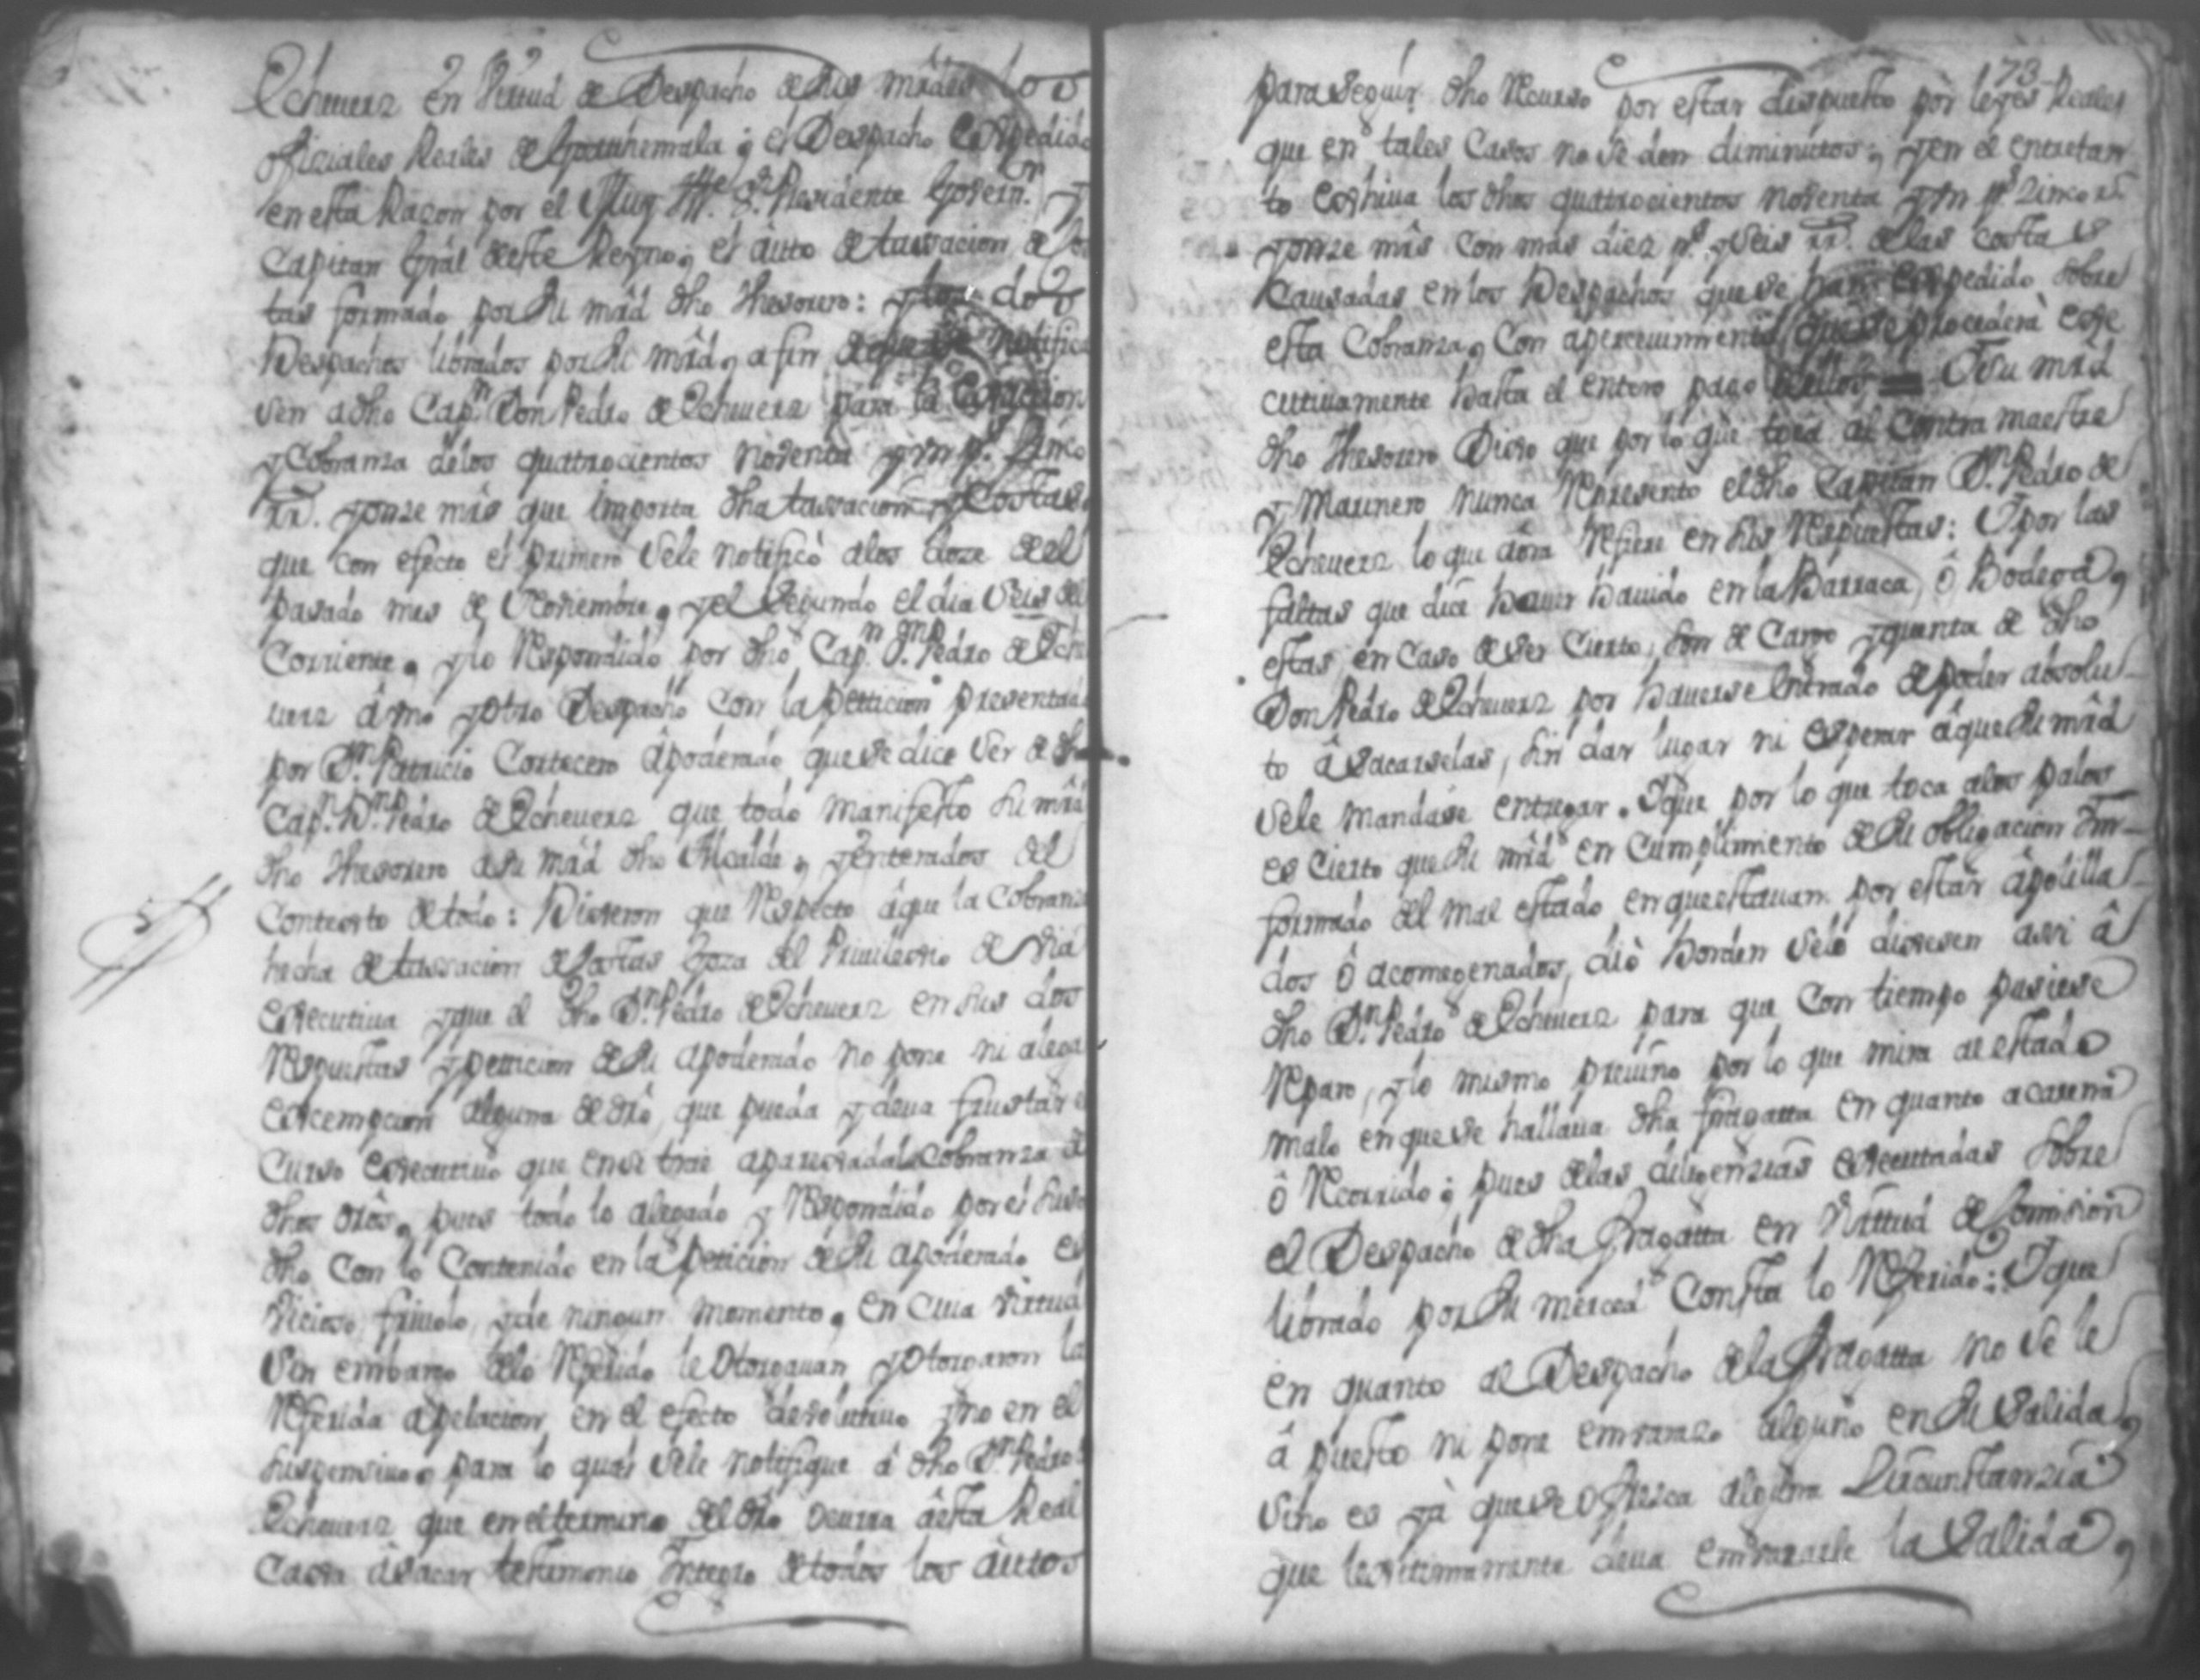 Echeuers en Virtud de Despacho de sus mrdes los
ofiziales Reales de Goathemala; el Despacho expedido
en esta Razon por el Muy Ille Sr. Presidente Govern.or y
Capitan Gral deste Reyno, el auto de tassacion de cos
tas formado por su mrd dho thesorero: y los dos
Despachos librados por su mrd, a fin de que se notifica
sen a dho Cap.n Don Pedro de Echeuers para la
y Cobranza de los quatrocientos noventa y un ps. Zinco
rrs. y onze mrs que importa dha tassacion y Costas
que con efecto el primero se le notificò a los doze del
pasado mes de Noviembre, y el Segundo el dia Seis del
Corriente, y lo Respondido por dho Cap.n Dn Pedro de Eche
uers à uno y otro Despacho con la petticion presentada
por Dn Patricio Apoderado que se dice ser de dho
Cap.n Dn Pedro de Echeuers que todo manifesto su mrd
dho thesorero a su mrd dho Alcalde, y enterados del
Contexto de todo: Dixeron que Respecto à que la Cobranza
hecha de tassacion de Costas goza del Privilexio de via
executiva y que el dho Dn Pedro de Echeuers en sus dos
Respuestas y petticion de su apoderado no pone ni alega
excempcion alguna de dro, que pueda y deva frustar el
Curso executivo que en si trae aparexada la Cobranza de
dhos dros, pues todo lo alegado y Respondido por el suso
dho con lo Contenido en la peticion de su apoderado es
Vicioso friuolo, y de ningun momento, en cuia virtud
Sin embargo de lo Referido le otorgauan y otorgaron la
Referida apelacion, en el efecto devolutivo y no en el
suspensiuo, para lo qual se le notifique à dho Dn Pedro
Echeuers que en el termino del dro ocurra à esta Real
Caxa à sacar testimonio Integro de todos los àutos
73
para Seguir dho Recurso por estar dispuesto por leyes Reales
que en tales Casos no se den diminutos, y en el entretan
to exhiua los dhos quatrocientos noventa y un ps Zinco rs
y onze mrs con mas diez ps. y seis rrs. de las costas
Causadas en los Despachos que se han expedido sobre
esta Cobranza, con apercevimiento que se procederà exe
cutiuamente hasta el entero pago Y su mrd
dho thesorero Dixo que por lo que toca al Contra maestre
y Marinero nunca Represento el dho Capitan Dn Pedro de
Echeuers lo que aora Refiere en sus Respuestas: Y por las
faltas que dice hauer hauido en la Barraca, ô Bodega,
estas en caso de ser Cierto, son de Cargo y quenta de dho
Don Pedro de Echeuers por hauerse Entrado de poder absolu-
to â sacarselas, sin dar lugar ni esperar à que su mrd
se le mandase entregar. Y que por lo que toca a los palos
es Cierto que su mrd en Cumplimiento de su obligacion Inn-
formado del mal estado, en que estauan por estar âpolilla-
dos ô acomegenados, diò horden se lo dixesen assi â
dho Dn Pedro de Echeuers para que con tiempo pusiese
Reparo, y lo mismo preuino por lo que mira al estado
malo en que se hallaua dha fragatta en quanto a carena
ô Recorrido; pues de las diligenzias executadas sobre
el Despacho de dha fragatta en Virttud de Comission
librado por su merced Consta lo Referido: Y que
en quanto al Despacho de la fragatta no se le
â puesto ni pone embarazo alguno en su salida,
sino es yà que se ofresca alguna Circunstanzia
que lexitimamente deua embarazarle la salida,